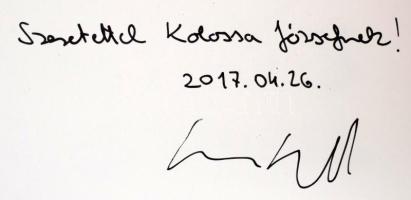 Szeretettel Kolossa Józsefnek!
2017.04.26.